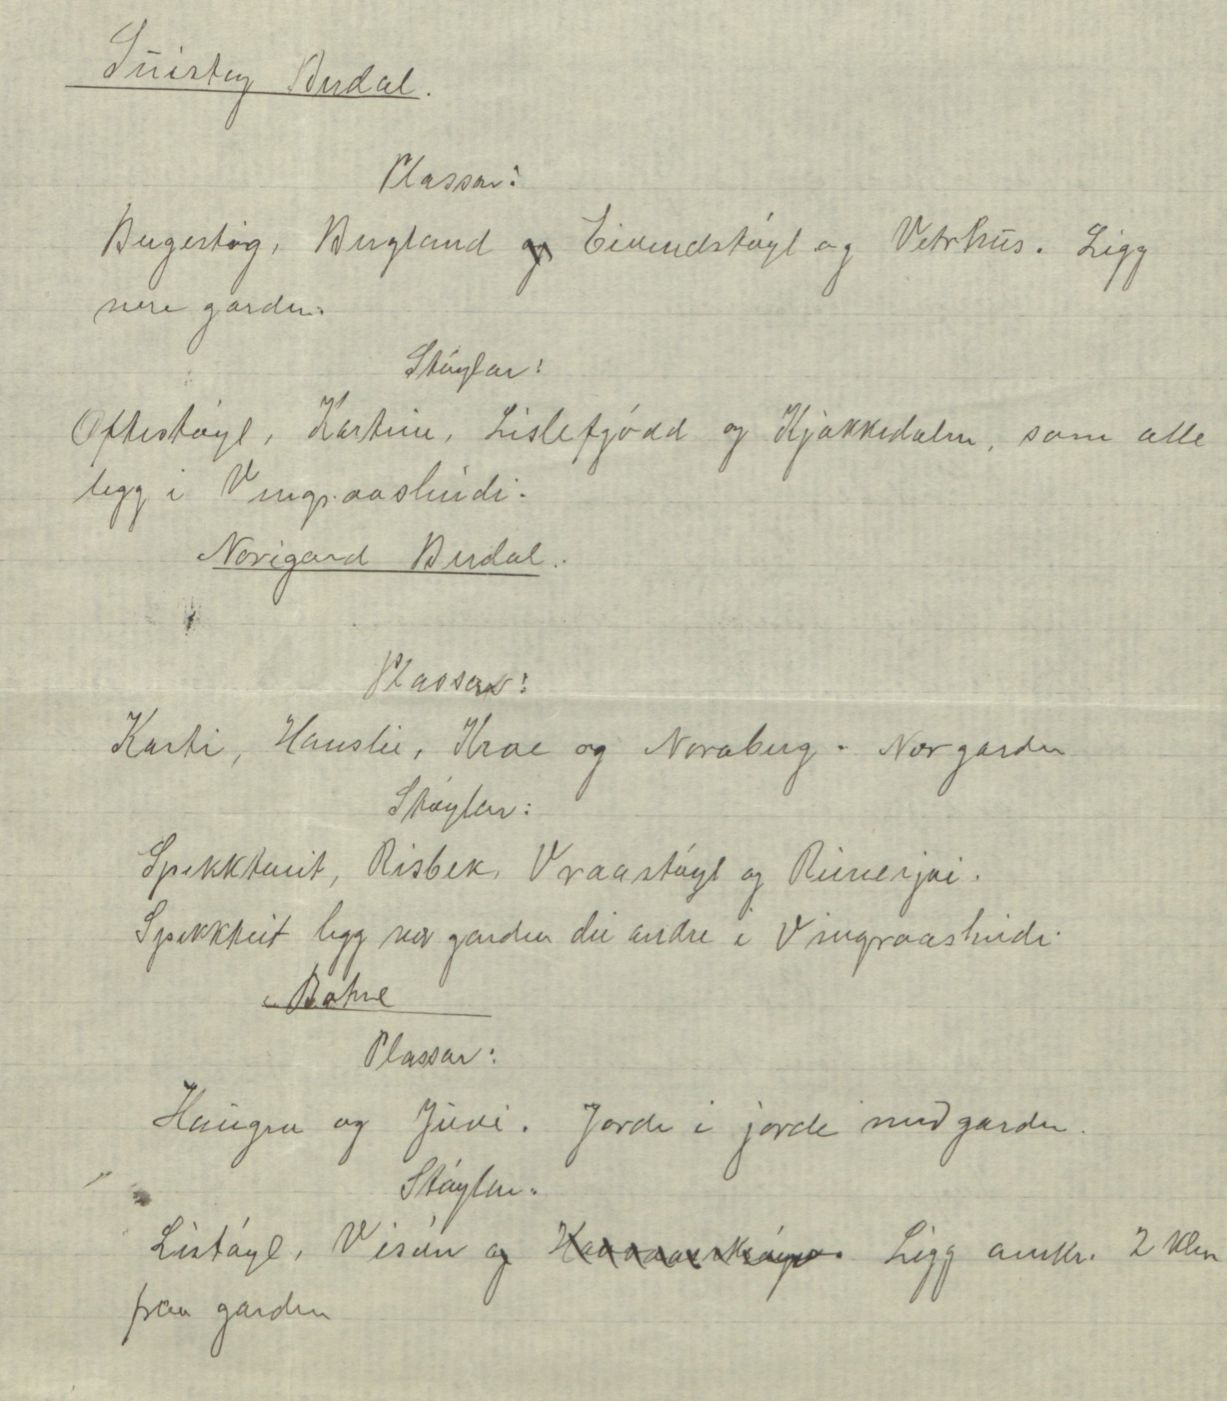 Suistog Berdal.
Plassar:
Bergestog, Bergland og Eivindstøyl og Vetrhus. Ligg
nere garden.
Støylar:
Oftestøyl, Kartine, Lislefjødd og Kjøkkedalen, som alle
legg i Vingraasheidi.
Norigard Berdal.
Plassar:
Karti, Hauslie, Krae og Noraberg. Nor garden
Støylar:
Spekkteit, Risbek, Vraastøyl og
Spekkteit legg nor garden dei andre i Vingraasheidi
Botne
Plassar:
Haugen og Juve. Jorde i jorde med garden.
Støylar.
Listøyl, og Ligg omkr. 2 klm
fraa garden